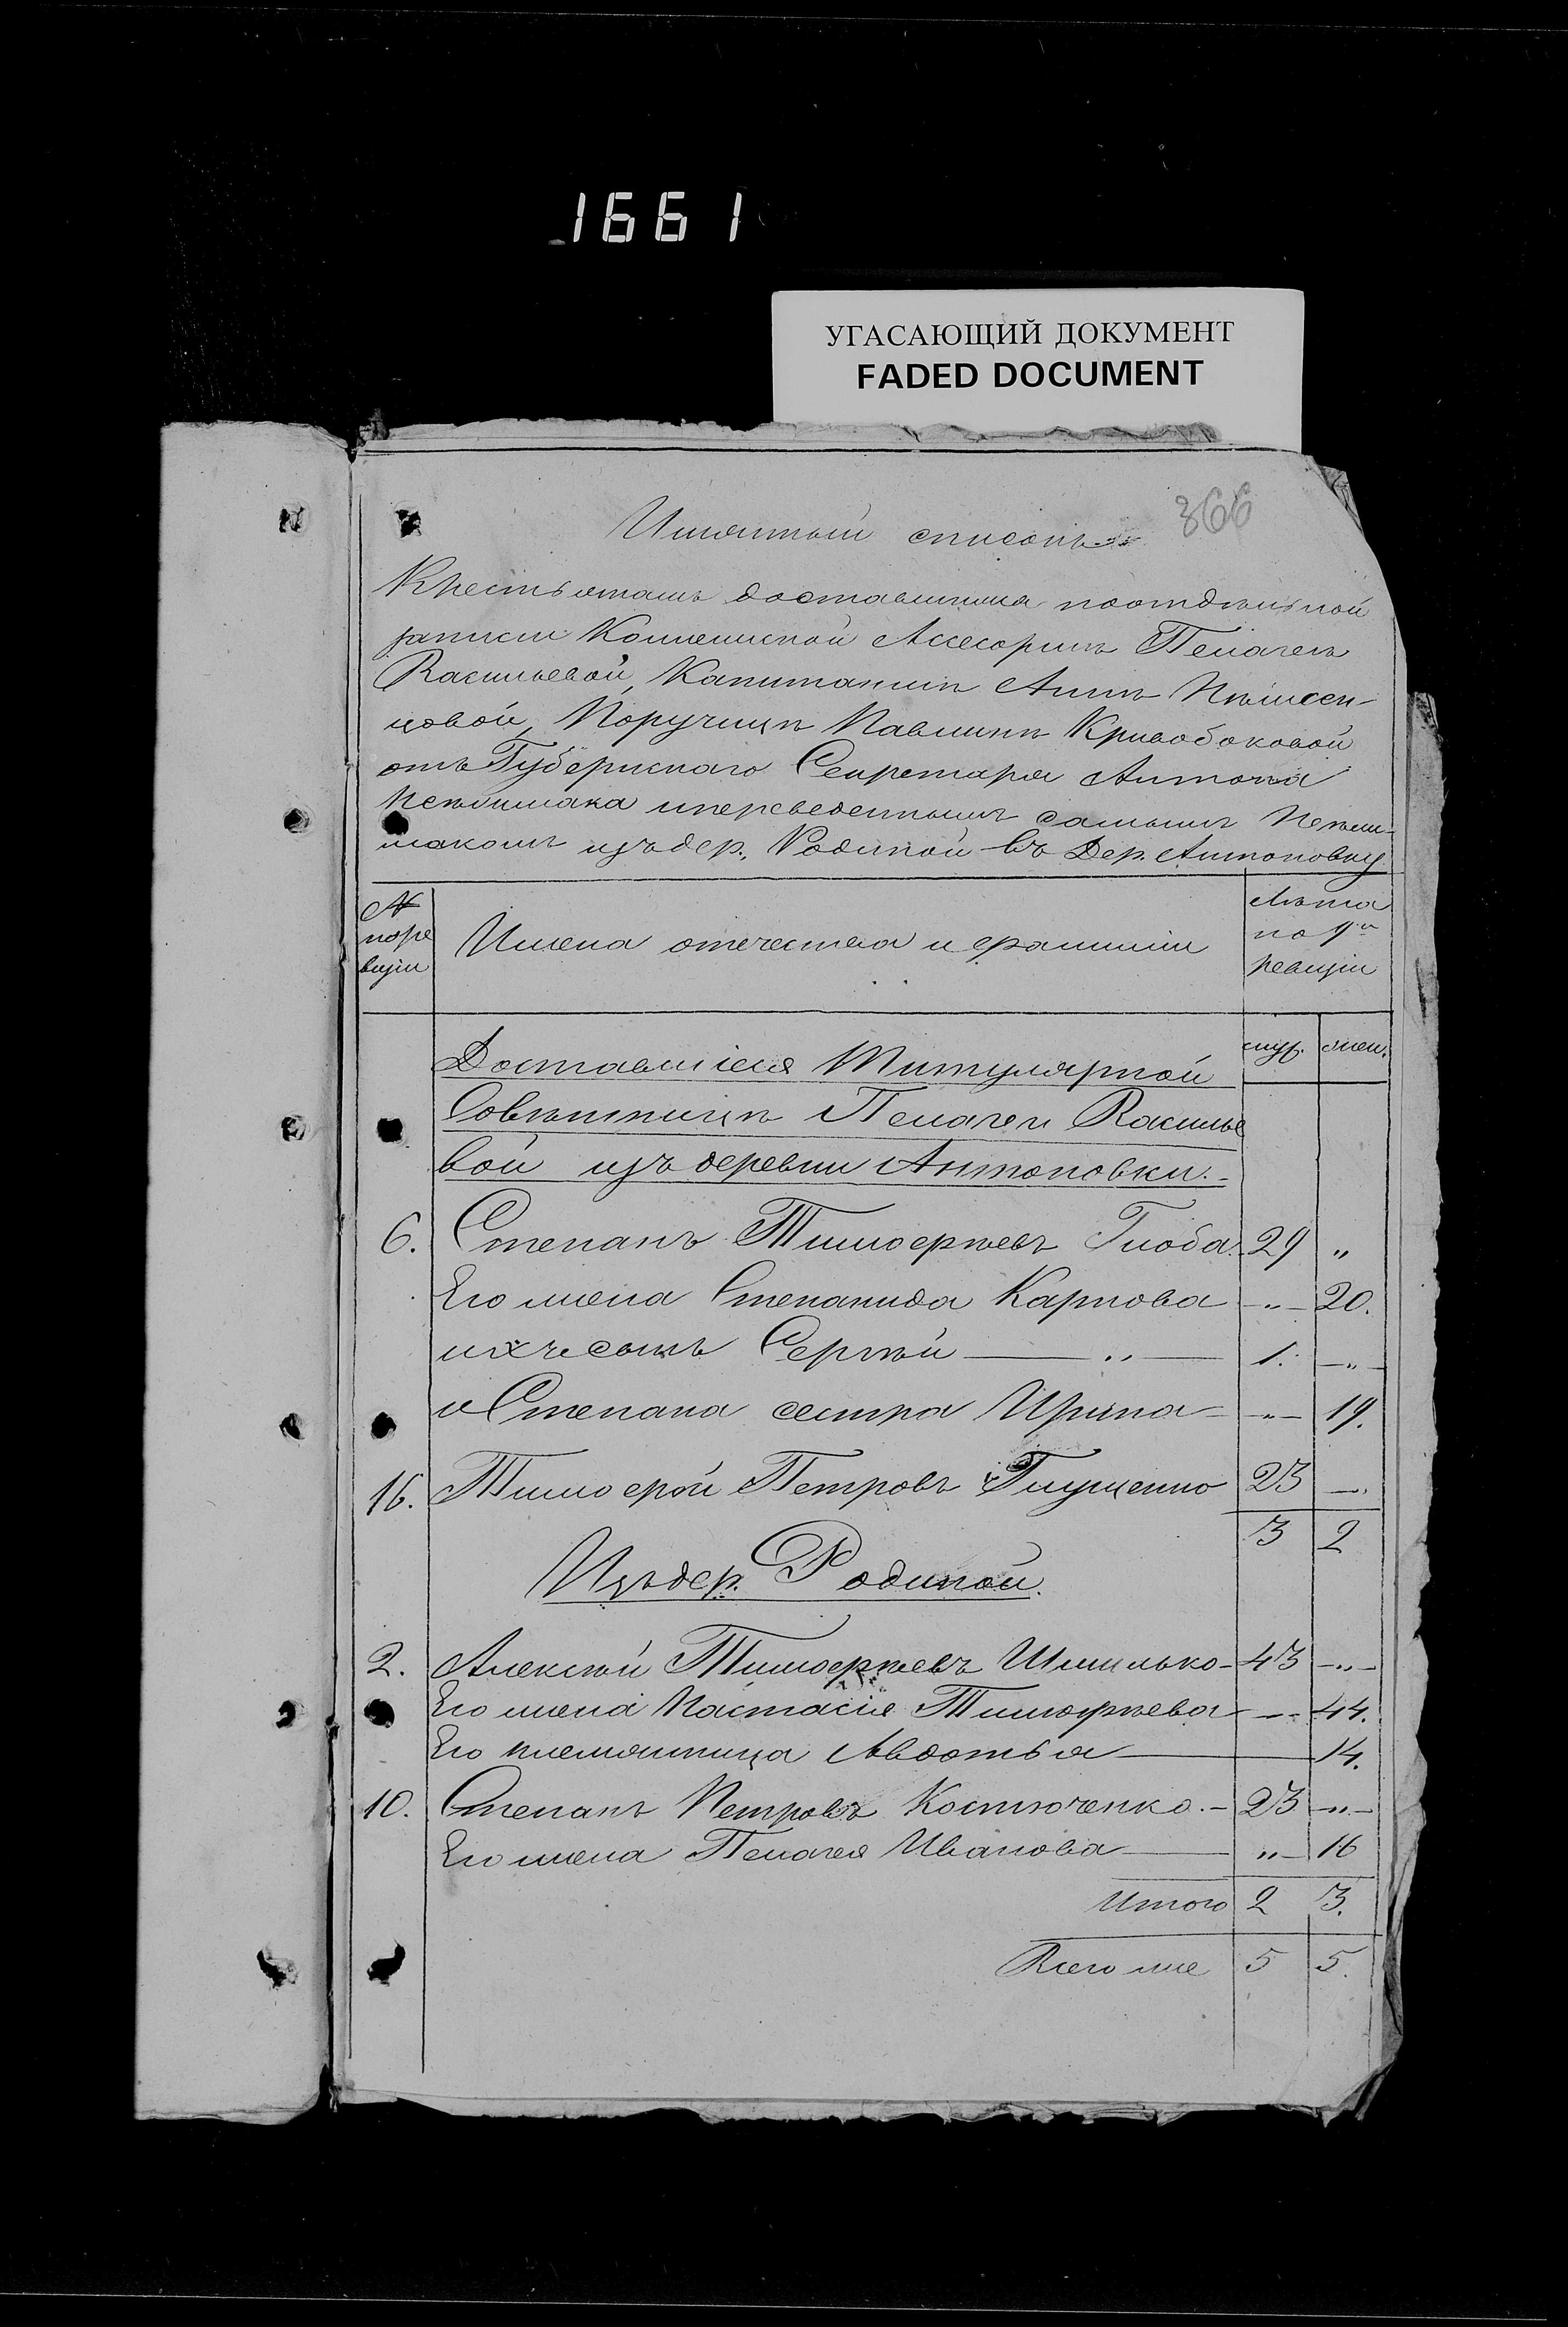 1661
УГАСАЮЩИЙ ДОКУМЕНТ
FADED DOCUMENT
366
Имянный списокъ
Крестьянамъ доставшимся поотдѣльной
записи Коллежской Ассесоршѣ Пелагеѣ
Васильевой, Капитаншѣ Аннѣ
Поручицѣ Павлинѣ Кривобоковой
отъ Губернскаго Секретаря Антона
ипереведеннымъ самымъ
изъ дер. Родиной въ Дер. Антоновку
№ поре визіи
Имена отечества и фамиліи
Лѣта по 9й ревизіи
муж. жен.
Доставшіеся Титулярной
Совѣтницѣ Пелагеи Василье
вой изъ деревни Антоновки.
6. Степанъ Тимофѣевъ Глоба 29 „
Его жена Степанида Карпова — „ — 20.
ихже сынъ Сергѣй — „ — 1. — „ —
и Степана сестра Ирина — „ — 19.
16. Тимофей Петровъ Глущенко 23 —
3 2
Изъ дер. Родиной.
2. Алексѣй Тимофѣевъ Шпилько — 43 — „ —
Его жена Настасія Тимофѣева — — 44.
Его племянница Авдотья — 14.
10. Степанъ Петровъ Костюченко. — 23 — „ —
Его жена Пелагея Иванова — „ — 16
Итого 2 3.
Всего же 5 5.